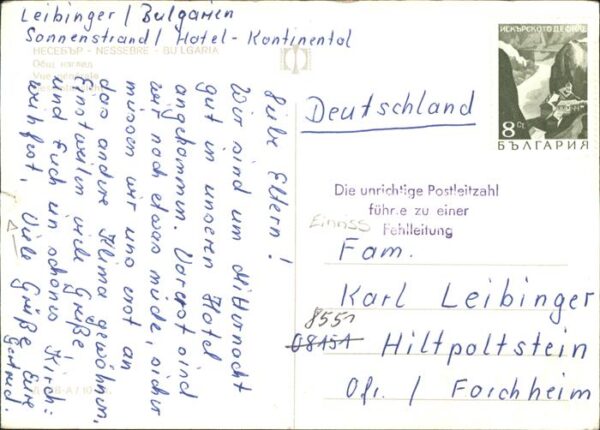 Leibinger / Bulgarien
Sonnenstrand / Hotel-Kontinental
НЕСЕБЪР - NESSEBRE - BULGARIA
Общ изглед
Liebe Eltern!
Wir sind um Mitternacht
gut in unseren Hotel
angekommen. Vorerst sind
wir noch etwas müde, sicher
müssen wir uns erst an
das andere Klima gewöhnen.
Einstweilen viele Grüße,
und Euch ein schönes Kirch-
weihfest. Viele Grüße Eure
Gertrud.
ИСКЪРСКОТО ДЕФИЛЕ
8 Ст.
БЪЛГАРИЯ
Deutschland
Die unrichtige Postleitzahl
führ.e zu einer
Fehlleitung
Fam.
Karl Leibinger
8551
08151
Hiltpoltstein
Ofr. / Forchheim